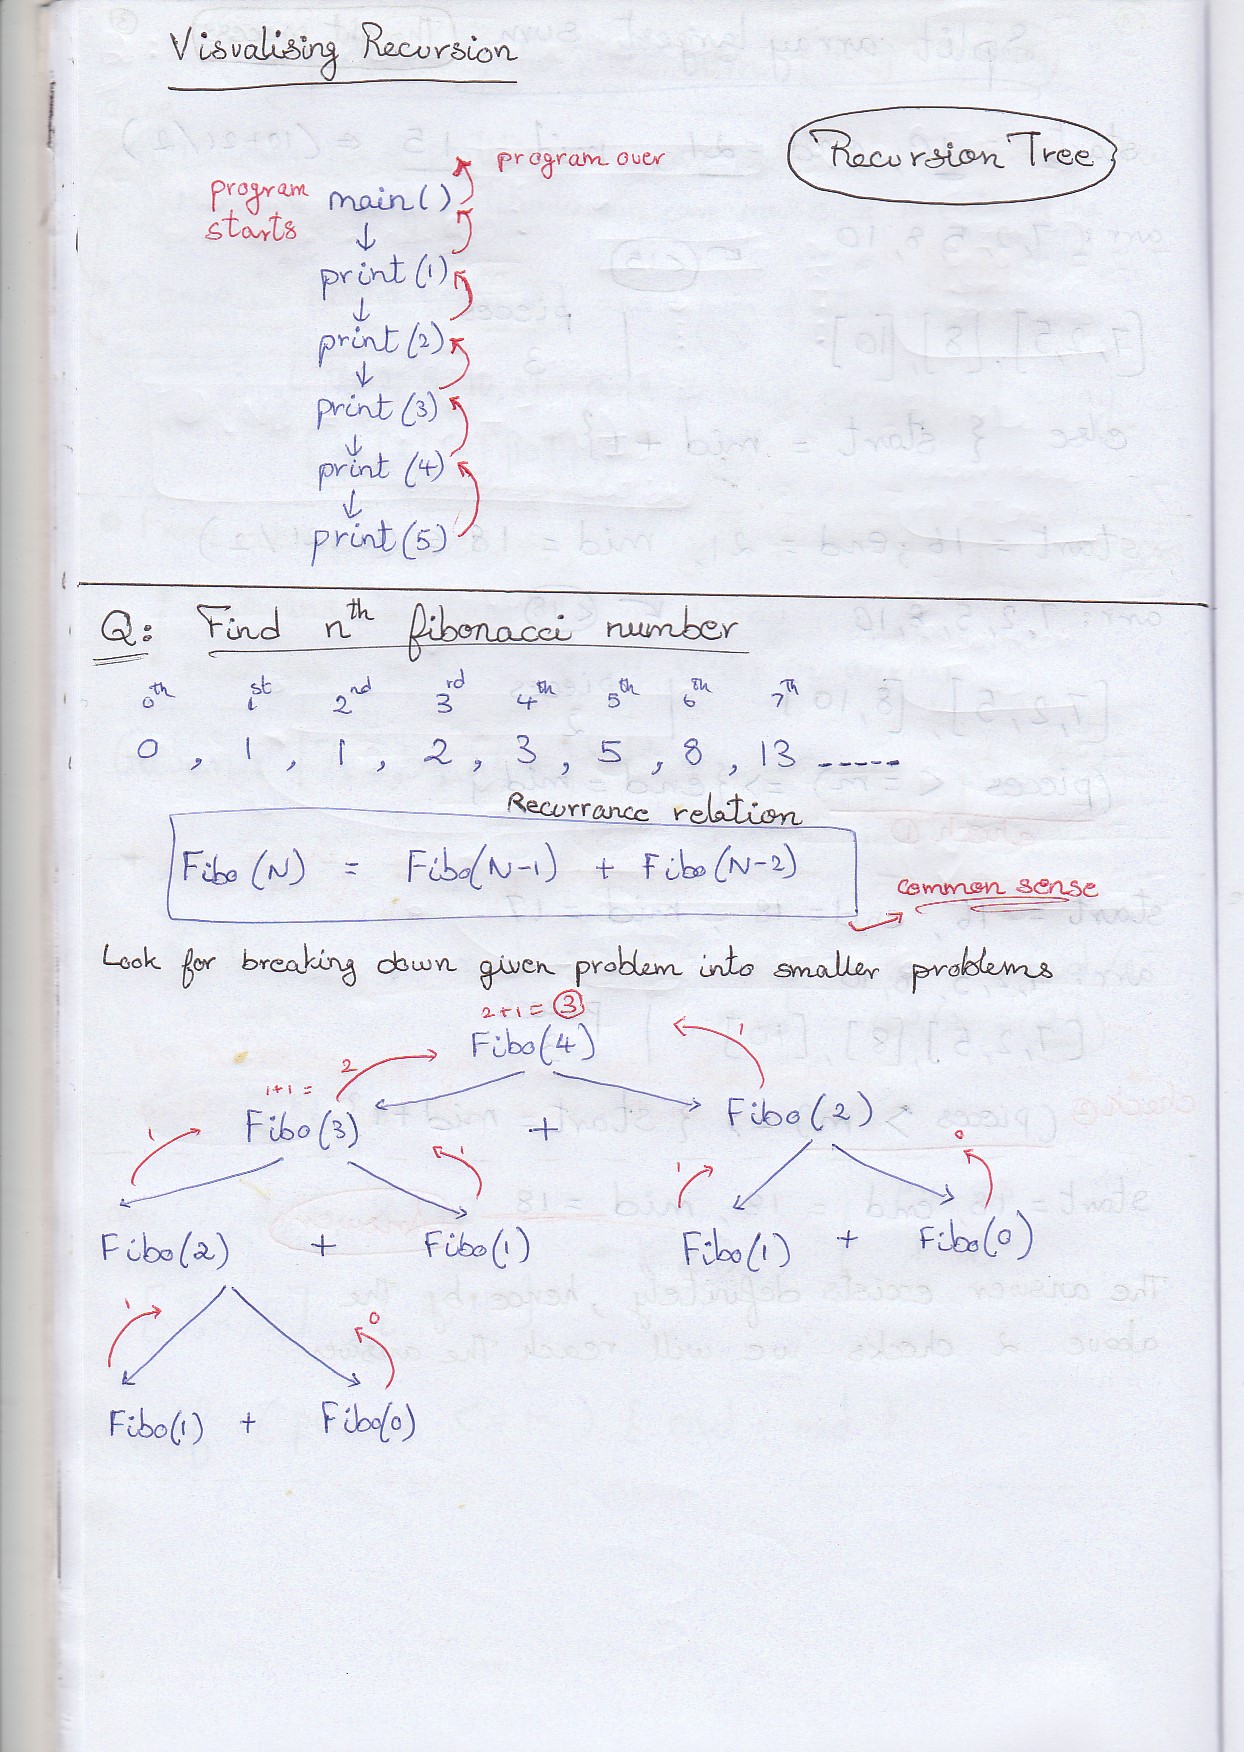 Visualising Recursion
Recursion Tree
program over
program starts
main()
↓
print(1)
↓
print(2)
↓
print(3)
↓
print (4)
↓
print(5)
Q: Find nth fibonacci number
0th 1st 2nd 3rd 4th 5th 6th 7th
0 , 1 , 1 , 2 , 3 , 5 , 8 , 13 -----
Recurrance relation
Fibo(N) = Fibo(N-1) + Fibo(N-2)
common sense
Look for breaking down given problem into smaller problems
2+1 = 3
Fibo(4)
2 1
1+1 =
Fibo(3) + Fibo(2)
1 1 1 0
Fibo(2) + Fibo(1) Fibo(1) + Fibo(0)
1 0
Fibo(1) + Fibo(0)